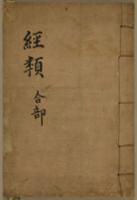 經類合部